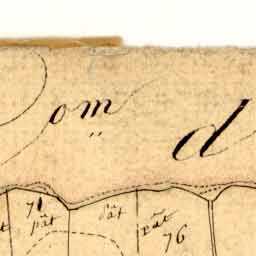 Com d
71 pât pât pât
76